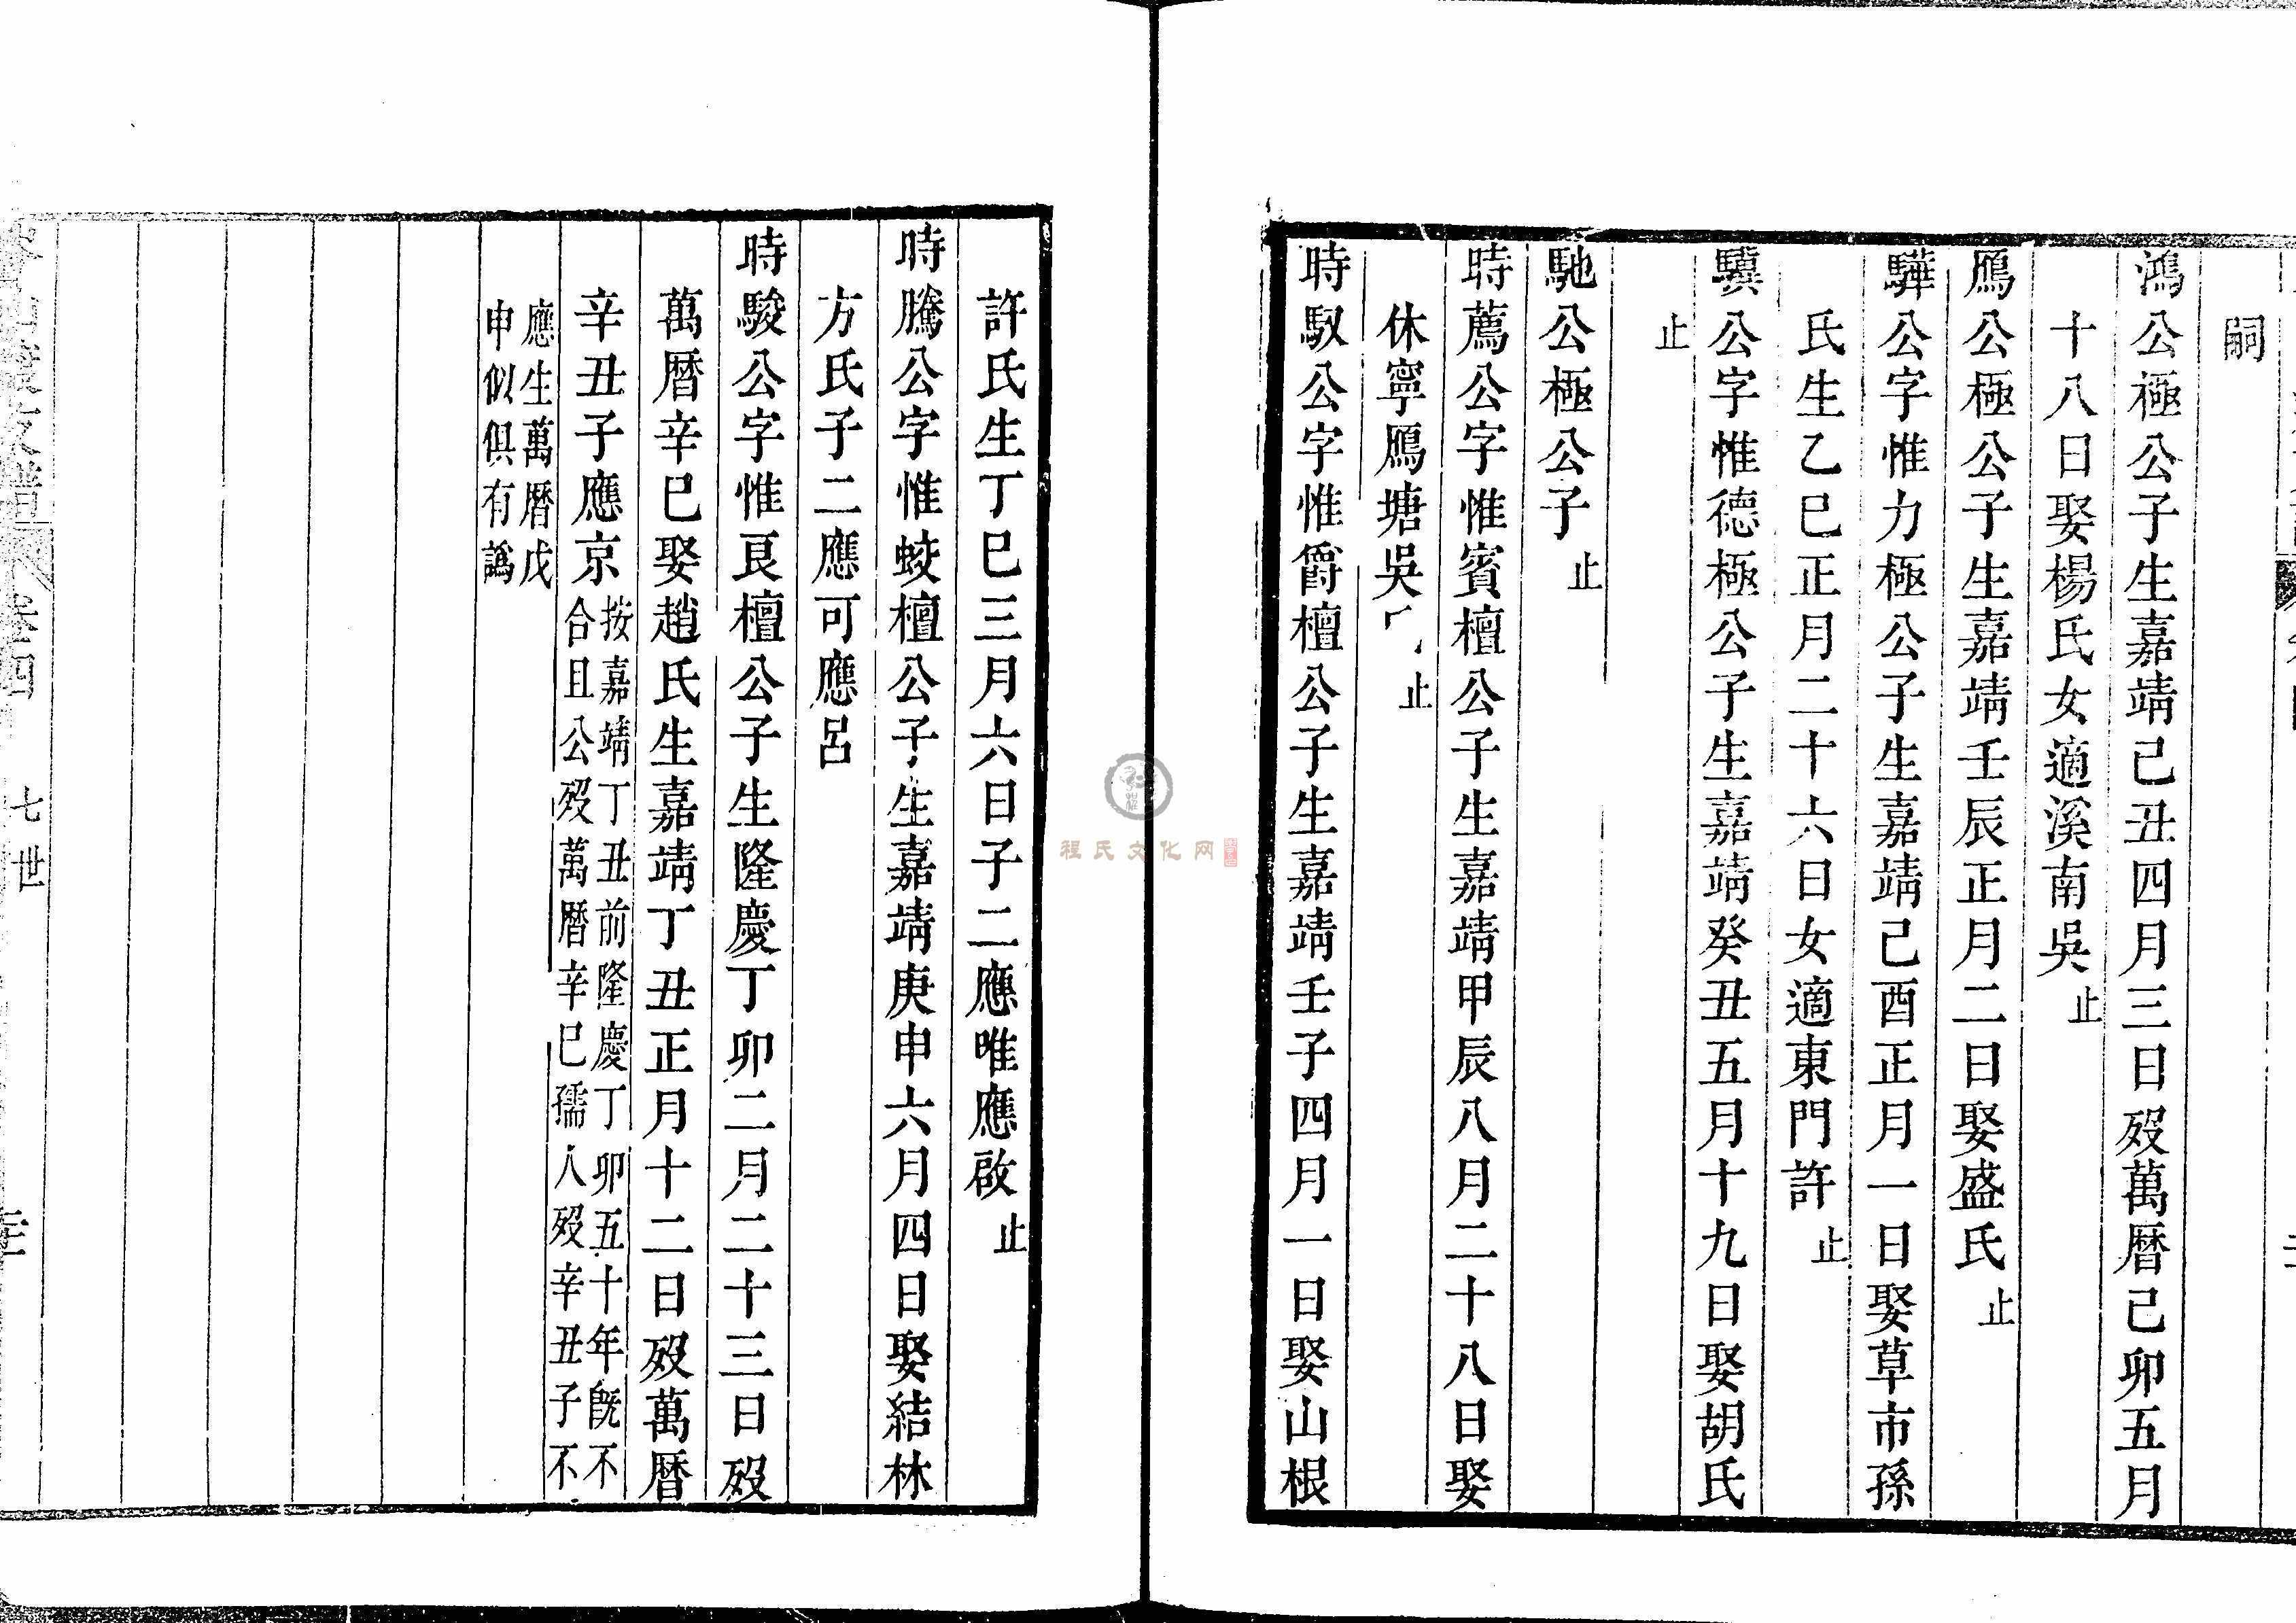 嗣
鴻公極公子生嘉靖己丑四月三日歿萬曆己卯五月
十八日娶楊氏女適溪南吳止
鴈公極公子生嘉靖壬辰正月二日娶盛氏止
驊公字惟力極公子生嘉靖己酉正月一日娶草市孫
氏生乙巳正月二十六日女適東門許止
驥公字惟德極公子生嘉靖癸丑五月十九日娶胡氏
止
馳公極公子止
時薦公字惟賓檀公子生嘉靖甲辰八月二十八日娶
休寧鴈塘吳止
時馭公字惟爵檀公子生嘉靖壬子四月一日娶山根
許氏生丁巳三月六日子二應唯應啟止
時騰公字惟蛟檀公子生嘉靖庚申六月四日娶結林
方氏子二應可應呂
時駿公字惟良檀公子生隆慶丁卯二月二十三日歿
萬曆辛巳娶趙氏生嘉靖丁丑正月十二日歿萬曆
辛丑子應京按嘉靖丁丑前隆慶丁卯五十年既不
合且公歿萬曆辛巳孺人歿辛丑子不
應生萬曆戊
申似俱有譌
卷四
七世
程氏文化网